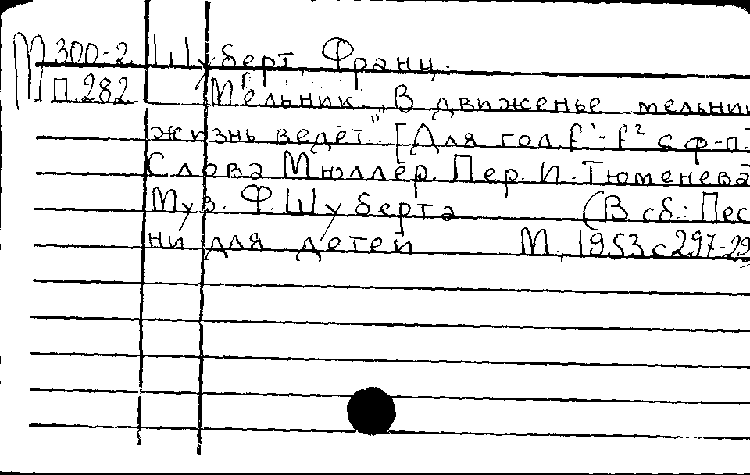 М 300-2 Шуберт, Франц.
П.282 Мельник „В движенье мельник
жизнь ведет" [Для гол. f¹-f² с ф-п.
Слова Мюллер. Пер. И. Тюменева
Муз. Ф Шуберта (В сб.: Пес
ни для детей М., 1953 с 297-29